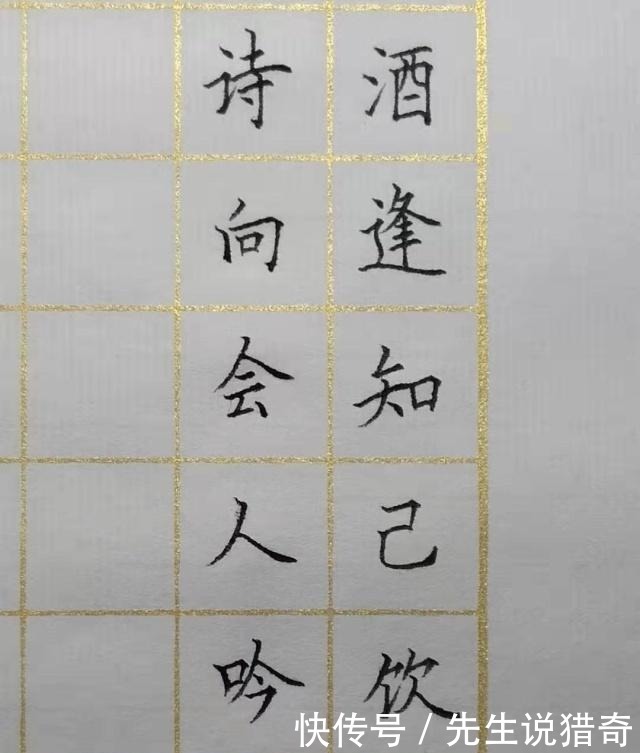 酒逢知己饮
诗向会人吟
快传号／先生说猎奇